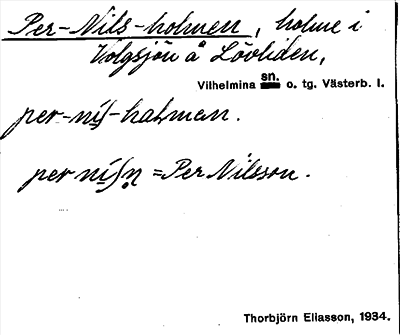 Per-Nils-holmen, holme i
Volgsjön å Lövliden,
Vilhelmina sn. o. tg. Västerb. l.
per-niʃ-halmen.
per niʃn̥ = Per Nilsson.
Thorbjörn Eliasson, 1934.